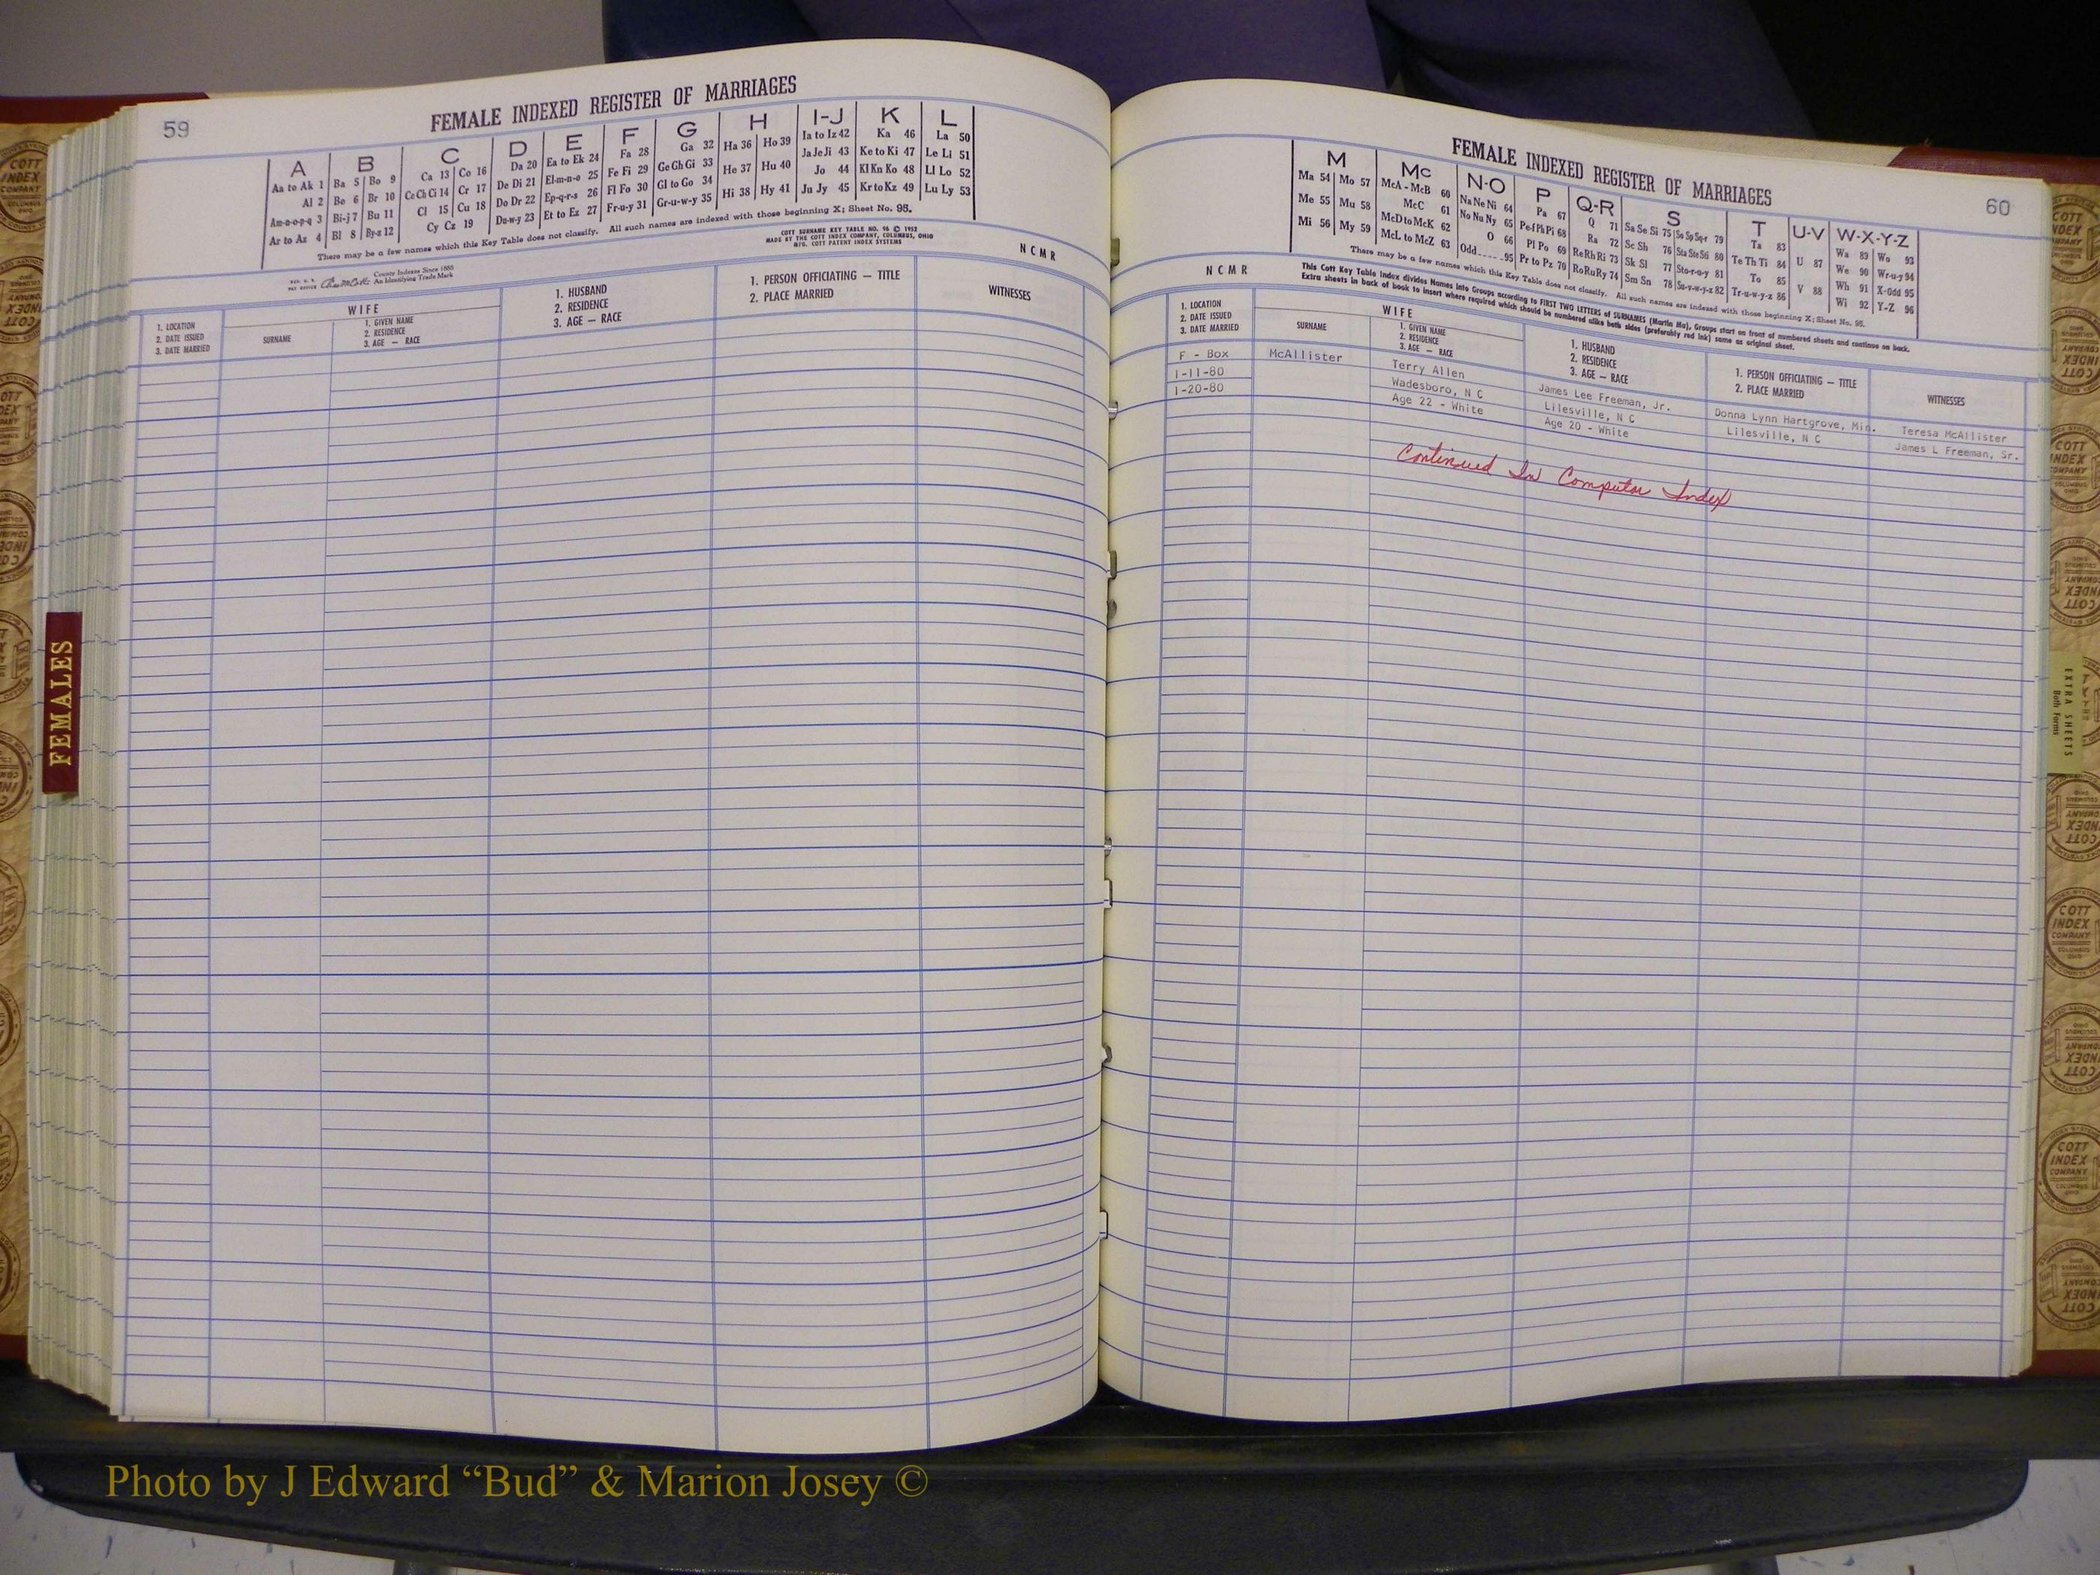 59
FEMALE INDEXED REGISTER OF MARRIAGES
A B C D E F G H I-J K L
Aa to Ak 1 Ba 5 Bo 9 Ca 13 Co 16 Da 20 Ea to Ek 24 Fa 28 Ga 32 Ha 36 Ho 39 Ia to Iz 42 Ka 46 La 50
Al 2 Be 6 Br 10 Ce Ch Ci 14 Cr 17 De Di 21 El-m-n-o 25 Fe Fi 29 Ge Gh Gi 33 He 37 Hu 40 Ja Je Ji 43 Ke to Ki 47 Le Li 51
Am-n-o-p-q 3 Bi-j 7 Bu 11 Cl 15 Cu 18 Do Dr 22 Ep-q-r-s 26 Fl Fo 30 Gl to Go 34 Hi 38 Hy 41 Jo 44 Kl Kn Ko 48 Ll Lo 52
Ar to Az 4 Bl 8 By-z 12 Cy Cz 19 Du-w-y 23 Et to Ez 27 Fr-u-y 31 Gr-u-w-y 35 Ju Jy 45 Kr to Kz 49 Lu Ly 53
There may be a few names which this Key Table does not classify. All such names are indexed with those beginning X; Sheet No. 95.
County Indexes Since 1888
An Identifying Trade Mark
COTT SURNAME KEY TABLE NO. 96 © 1952
MADE BY THE COTT INDEX COMPANY, COLUMBUS, OHIO
MFG. COTT PATENT INDEX SYSTEMS
NCMR
1. LOCATION
2. DATE ISSUED
3. DATE MARRIED
WIFE
SURNAME
1. GIVEN NAME
2. RESIDENCE
3. AGE — RACE
1. HUSBAND
2. RESIDENCE
3. AGE — RACE
1. PERSON OFFICIATING — TITLE
2. PLACE MARRIED
WITNESSES
FEMALES
60
FEMALE INDEXED REGISTER OF MARRIAGES
M Mc N-O P Q-R S T U-V W-X-Y-Z
Ma 54 Mo 57 McA - McB 60 Na Ne Ni 64 Pa 67 Q 71 Sa Se Si 75 So Sp Sq-r 79 Ta 83 U 87 Wa 89 Wo 93
Me 55 Mu 58 McC 61 No Nu Ny 65 Pe-f Ph Pi 68 Ra 72 Sc Sh 76 Sta Ste Sti 80 Te Th Ti 84 V 88 We 90 Wr-u-y 94
Mi 56 My 59 McD to McK 62 O 66 Pl Po 69 Re Rh Ri 73 Sk Sl 77 Sto-r-u-y 81 To 85 Wh 91 X-Odd 95
McL to McZ 63 Odd 95 Pr to Pz 70 Ro Ru Ry 74 Sm Sn 78 Su-v-w-y-z 82 Tr-u-w-y-z 86 Wi 92 Y-Z 96
There may be a few names which this Key Table does not classify. All such names are indexed with those beginning X; Sheet No. 95.
This Cott Key Table Index divides Names into Groups according to FIRST TWO LETTERS of SURNAMES (Martin Ma), Groups start on front of numbered sheets and continue on back.
Extra sheets in back of book to insert where required which should be numbered alike both sides (preferably red ink) same as original sheet.
NCMR
1. LOCATION
2. DATE ISSUED
3. DATE MARRIED
WIFE
SURNAME
1. GIVEN NAME
2. RESIDENCE
3. AGE — RACE
1. HUSBAND
2. RESIDENCE
3. AGE — RACE
1. PERSON OFFICIATING — TITLE
2. PLACE MARRIED
WITNESSES
F - Box McAllister Terry Allen James Lee Freeman, Jr. Donna Lynn Hartgrove, Min. Teresa McAllister
1-11-80 Wadesboro, N C Lilesville, N C Lilesville, N C James L Freeman, Sr.
1-20-80 Age 22 - White Age 20 - White
Continued In Computer Index
EXTRA SHEETS
Both Forms
COTT
INDEX
COMPANY
COLUMBUS
OHIO
Photo by J Edward “Bud” & Marion Josey ©